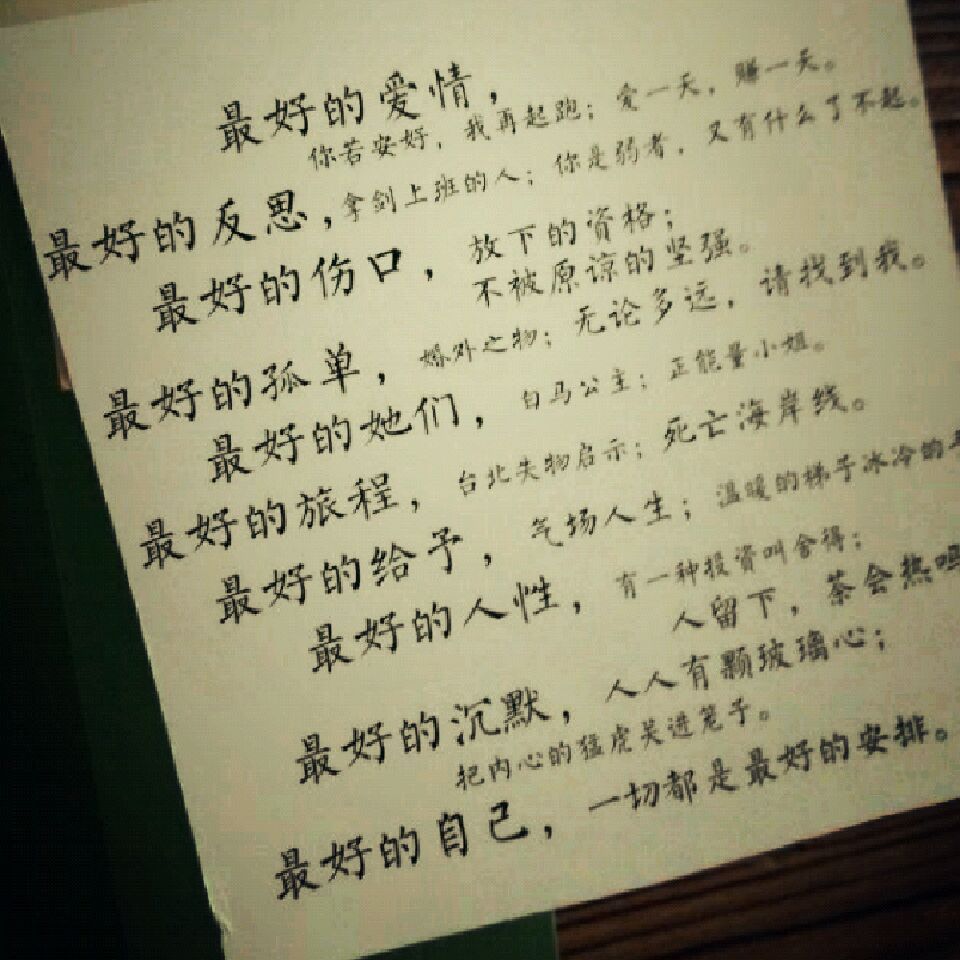 最好的爱情，
你若安好，我再起跑；爱一天，赚一天。
最好的反思，拿剑上班的人；你是弱者，又有什么了不起。
最好的伤口，放下的资格；
不被原谅的坚强。
最好的孤单，婚外之物；无论多远，请找到我。
最好的她们，白马公主；正能量小姐。
最好的旅程，台北失物启示；死亡海岸线。
最好的给予，气场人生；温暖的梯子冰冷的
最好的人性，有一种投资叫舍得；
人留下，茶会热吗
最好的沉默，人人有颗玻璃心；
把内心的猛虎关进笼子。
最好的自己，一切都是最好的安排。